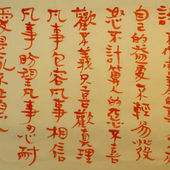 自己的益處不輕易發
怒不計算人的惡不喜
歡不義只喜歡真理
凡事包容凡事相信
凡事盼望凡事忍耐
愛是永不止息